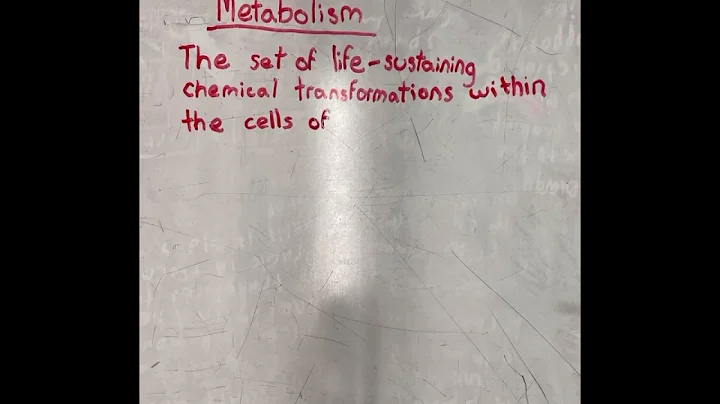 Metabolism
The set of life-sustaining
chemical transformations within
the cells of